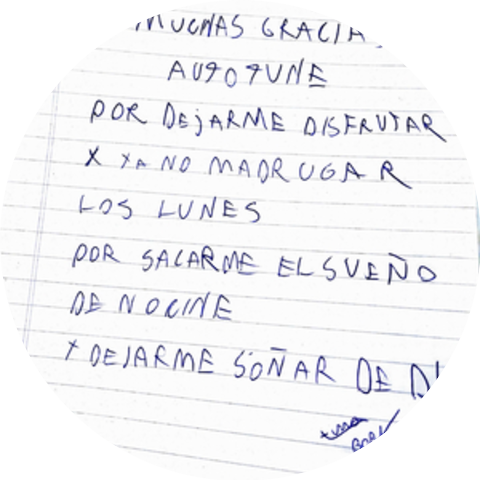 MUCHAS GRACIA
AUTOTUNE
POR DEJARME DISFRUTAR
X YA NO MADRUGAR
LOS LUNES
POR SACARME EL SUEÑO
DE NOCHE
Y DEJARME SOÑAR DE DI